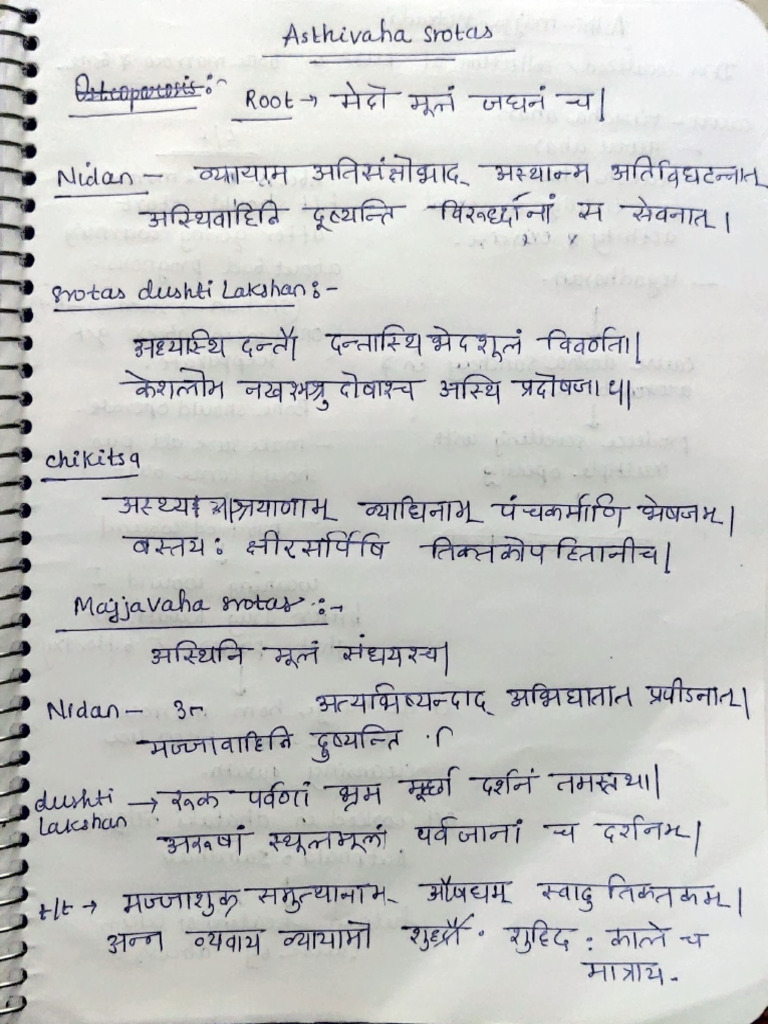 Asthivaha srotas
Osteoporosis :-
Root → मेदो मूलं जघनं च|
Nidan – व्यायाम अतिसंक्षोभाद् अस्थान्म अतिविघटन्नात्
अस्थिवाहिनि दूष्यन्ति स सेवनात् |
srotas dushti Lakshan :-
अध्यास्थि दन्तै दन्तास्थि भेदशूलं विवर्णता|
केशलोम नखश्मश्रु दोषाश्च अस्थि प्रदोषजा
chikitsa
व्याधिनाम् पंचकर्माणि भेषजम् |
बस्तय : क्षीरसर्पिषि तिक्तकोपहितानीच|
Majjavaha srotas :→
अस्थिनि मूलं संधयश्च|
Nidan – उ अत्याभिष्यन्दाद् अभिघातात प्रपीडनात्|
मज्जावाहिनि दुष्यन्ति
dushti Lakshan → रूक पर्वणां भ्रम मूर्छा दर्शनं तमस्तथा|
अरूषां स्थूलमूलां पर्वजानां च दर्शनम् |
t/t → मज्जाशुक्र समुत्थानाम् औषधम् स्वादु तिक्तकम् |
अन्न व्यवाय व्यायामो शुद्धि : काले च
मात्राय .